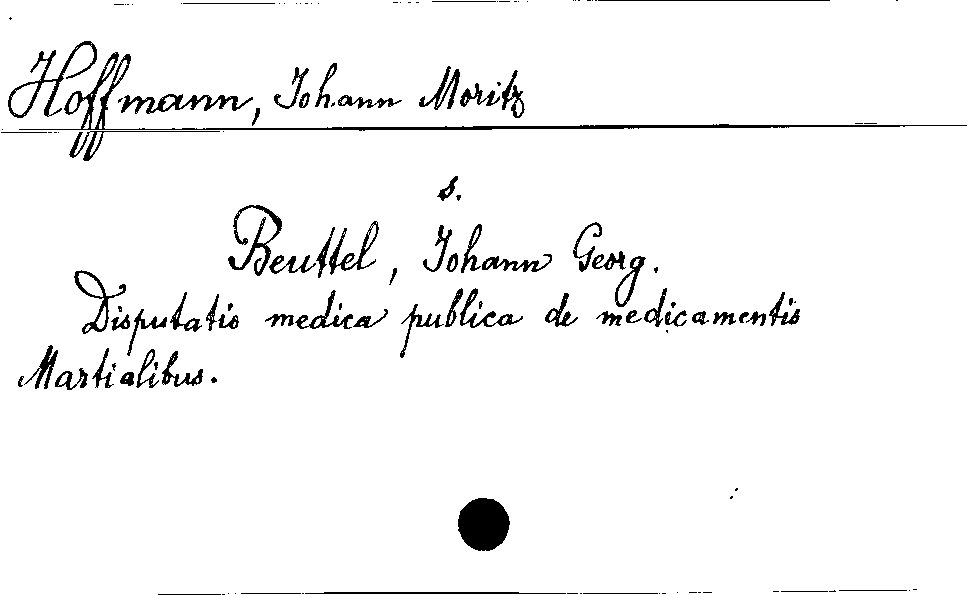 Hoffmann, Johann Moritz
s.
Beuttel, Johann Georg.
Disputatio medica publica de medicamentis
Martialibus.